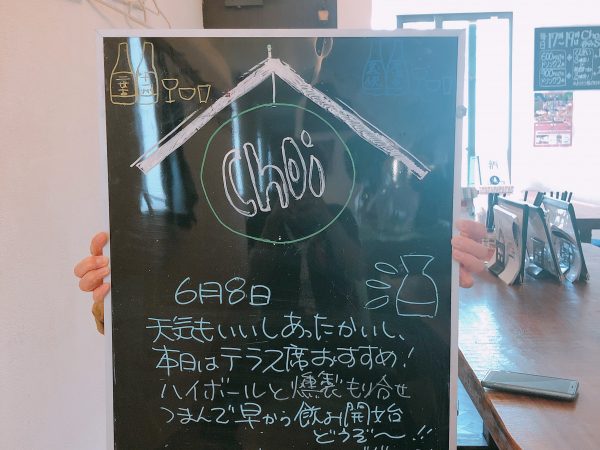 Choi
6月8日
天気もいいしあったかいし、
本日はテラス席おすすめ!
ハイボールと燻製もり合せ
つまんで早から飲み開始
どうぞ〜!!
17〜19時